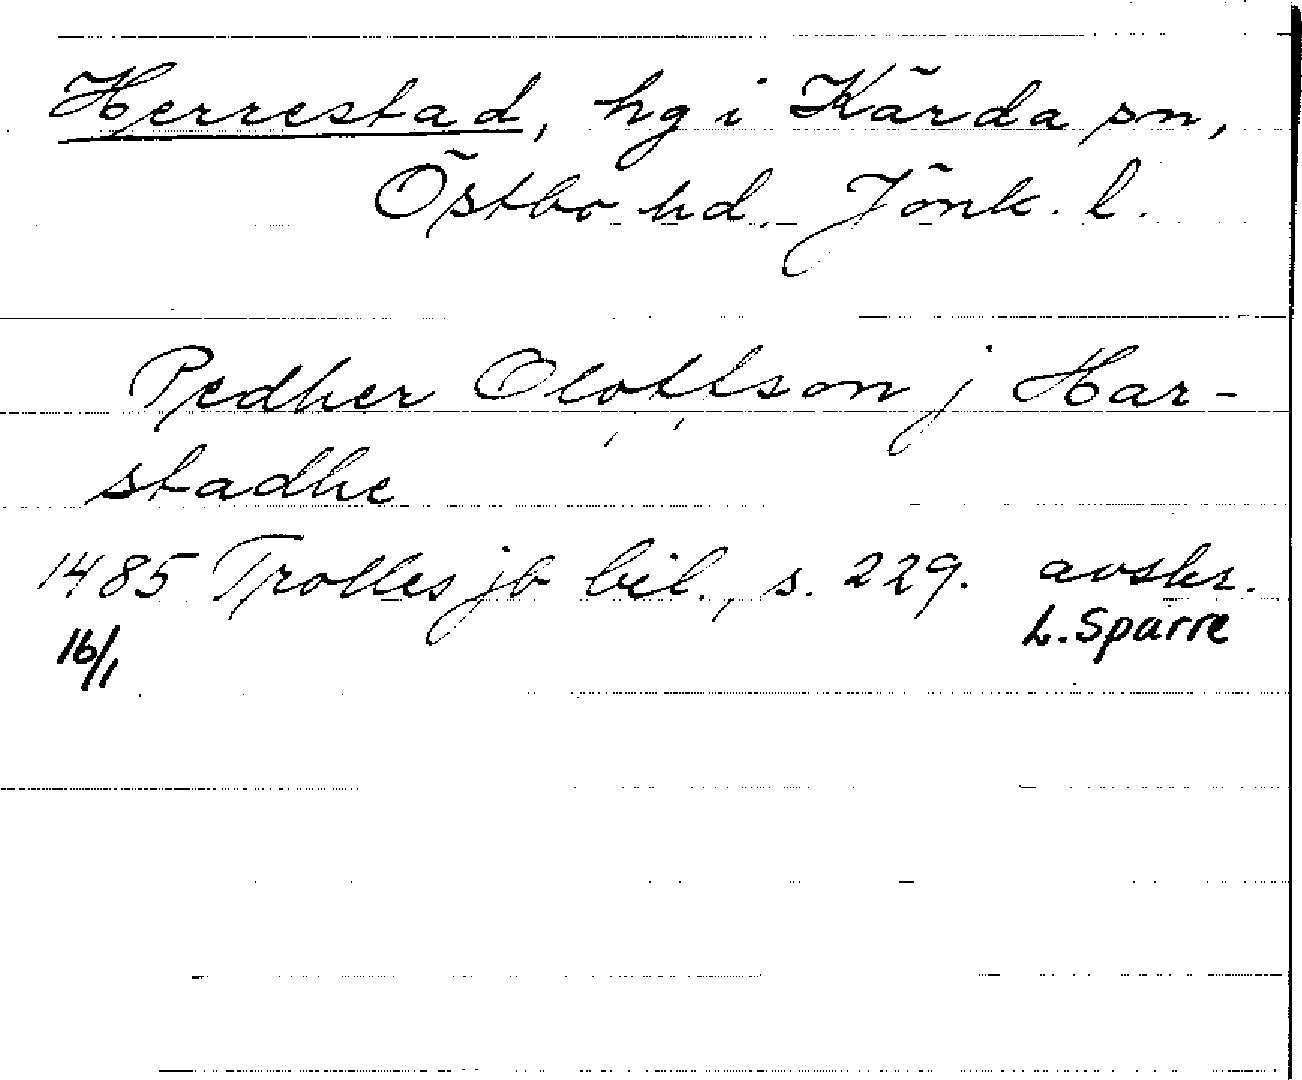 Herrestad, hg i Kärda sn,
Östbo hd. Jönk. l.
Pædher Oloffson j Har-
stadhe
1485 Trolles jb bil., s. 229. avskr.
16/1 L. Sparre